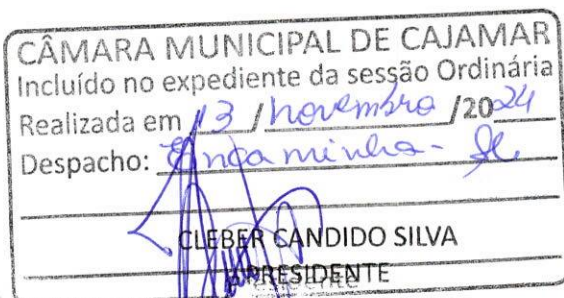 CÂMARA MUNICIPAL DE CAJAMAR
Incluído no expediente da sessão Ordinária
Realizada em 13 / novembro /2024
Despacho: Encaminha-se
CLEBER CANDIDO SILVA
PRESIDENTE